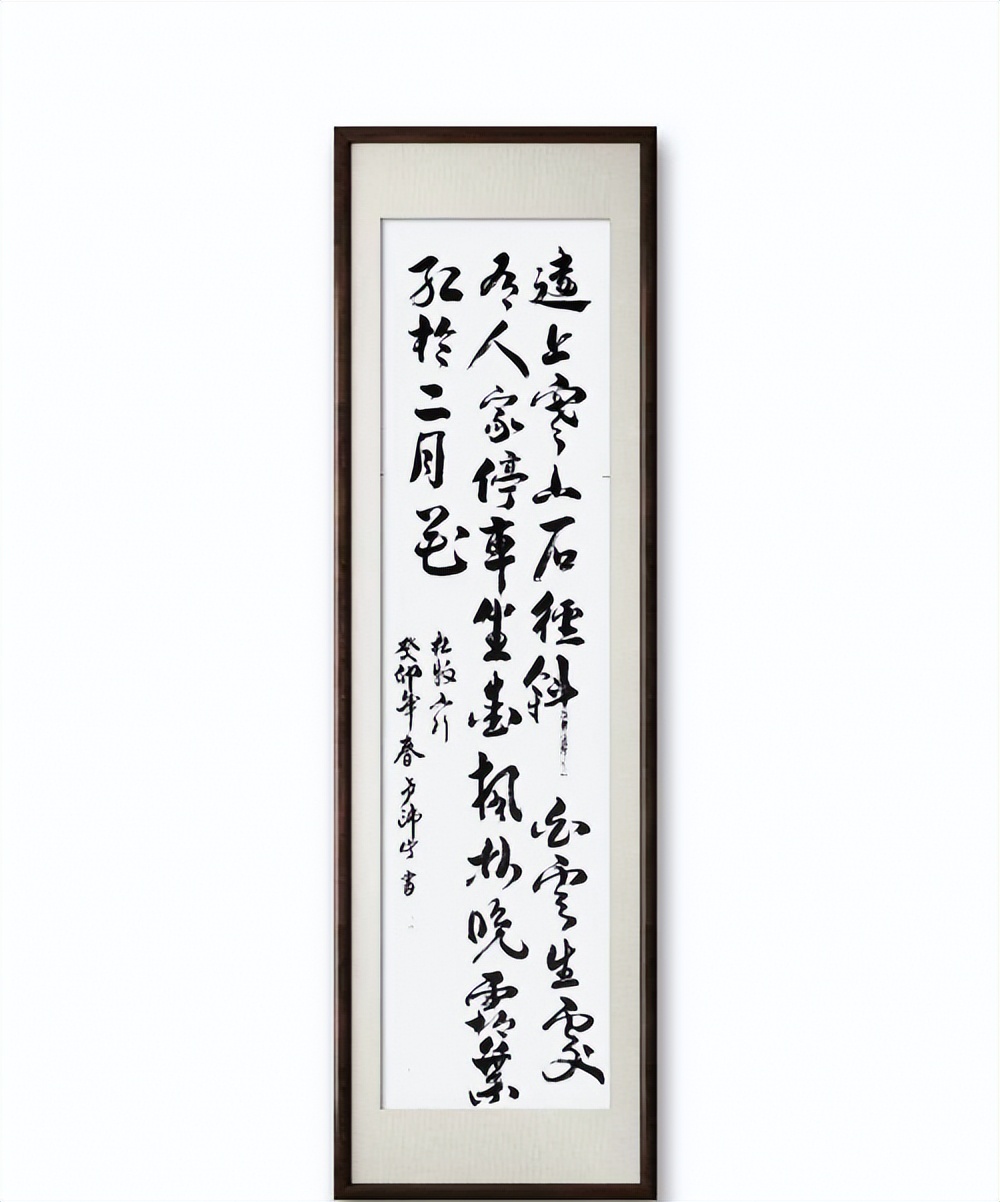 遠上寒山石徑斜白雲生處
有人家停車坐愛楓林晚霜葉
紅於二月花
杜牧山行
癸卯年春書